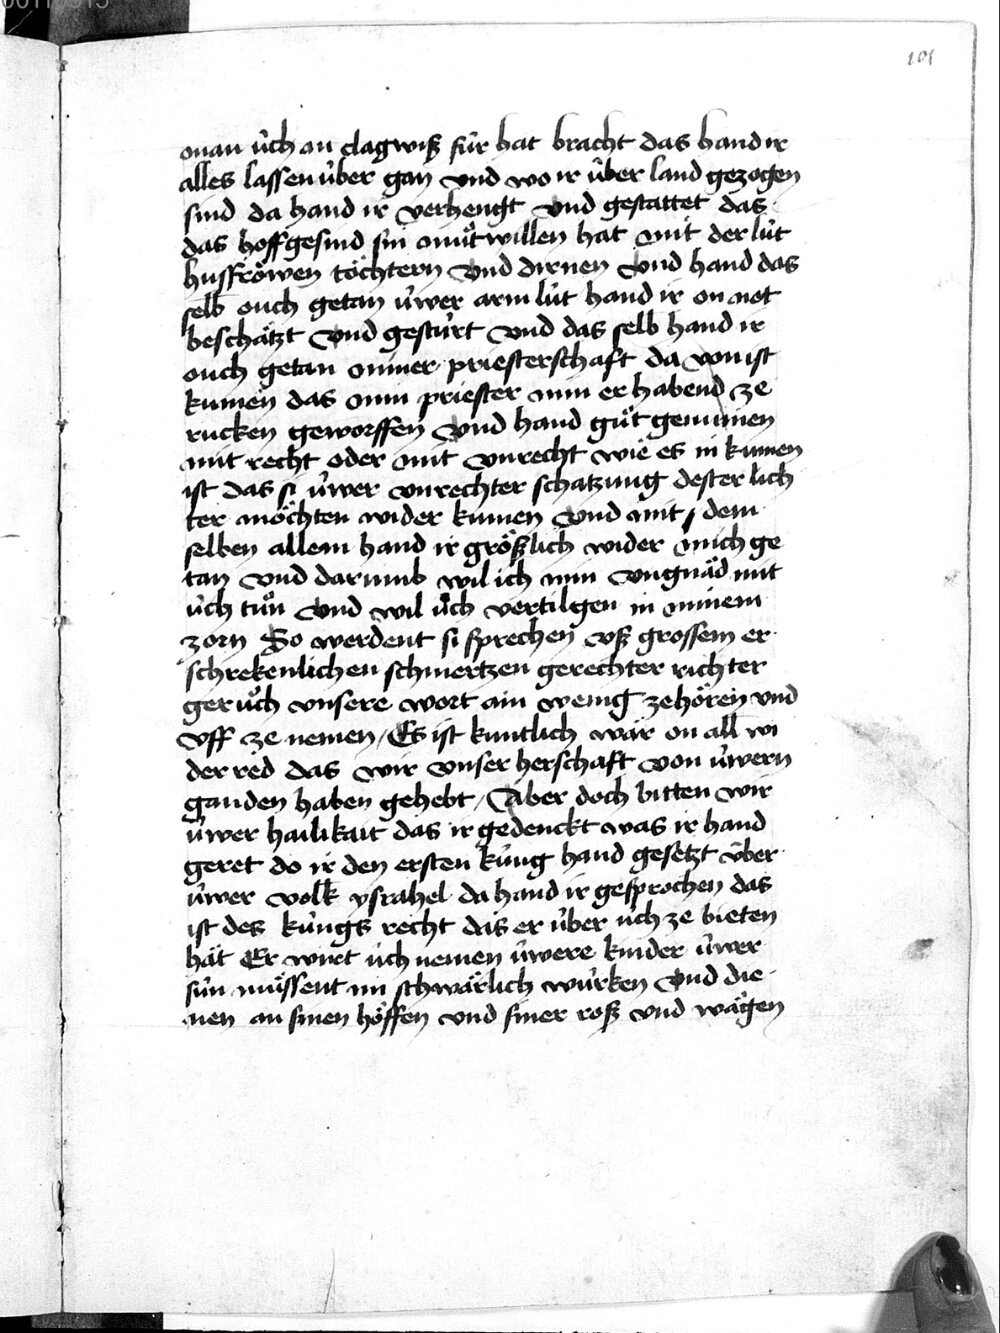 101
man üch an clagwiß für hat bracht das hand ir
alles lassen über gan vnd wo ir über land gezogen
sind da hand ir verhengt vnd gestattet das
das hoffgesind sin muͦtwillen hat mit der lüt
husfröwen töchtern vnd dirnen vnd hand das
selb ouch getan üwer arm lüt hand ir on not
beschätzt vnd gestürt vnd das selb hand ir
ouch getan miner priesterschaft da von ist
kumen das min priester min er habend ze
rucken geworffen vnd hand guͦt genumen
mit recht oder mit vnrecht wie es in kumen
ist das si üwer vnrechter schatzung dester lich
ter möchten wider kumen vnd mit / dem
selben allem hand ir größlich wider mich ge
tan vnd darumb wil ich min vngnäd mit
üch tuͦn vnd wil üch vertilgen in minem
zorn So werdent si sprechen vß grossem er
schrekenlichen schmertzen gerechter richter
geruͦch vnsere wort ain wenig ze hören vnd
vff ze nemen / Es ist kuntlich wär on all wi
der red das wir vnser herschaft von üwern
gnaden haben gehebt / Aber doch bitten wir
üwer hailikait das ir gedenckt was ir hand
geret do ir den ersten küng hand gesetzt über
üwer volk ysrahel da hand ir gesprochen das
ist des küngs recht das er über üch ze bieten
hät Er wirt üch nemen üwere kinder üwer
sün müssent im schwärlich würken vnd die
nen an sinen höffen vnd siner roß vnd wägen